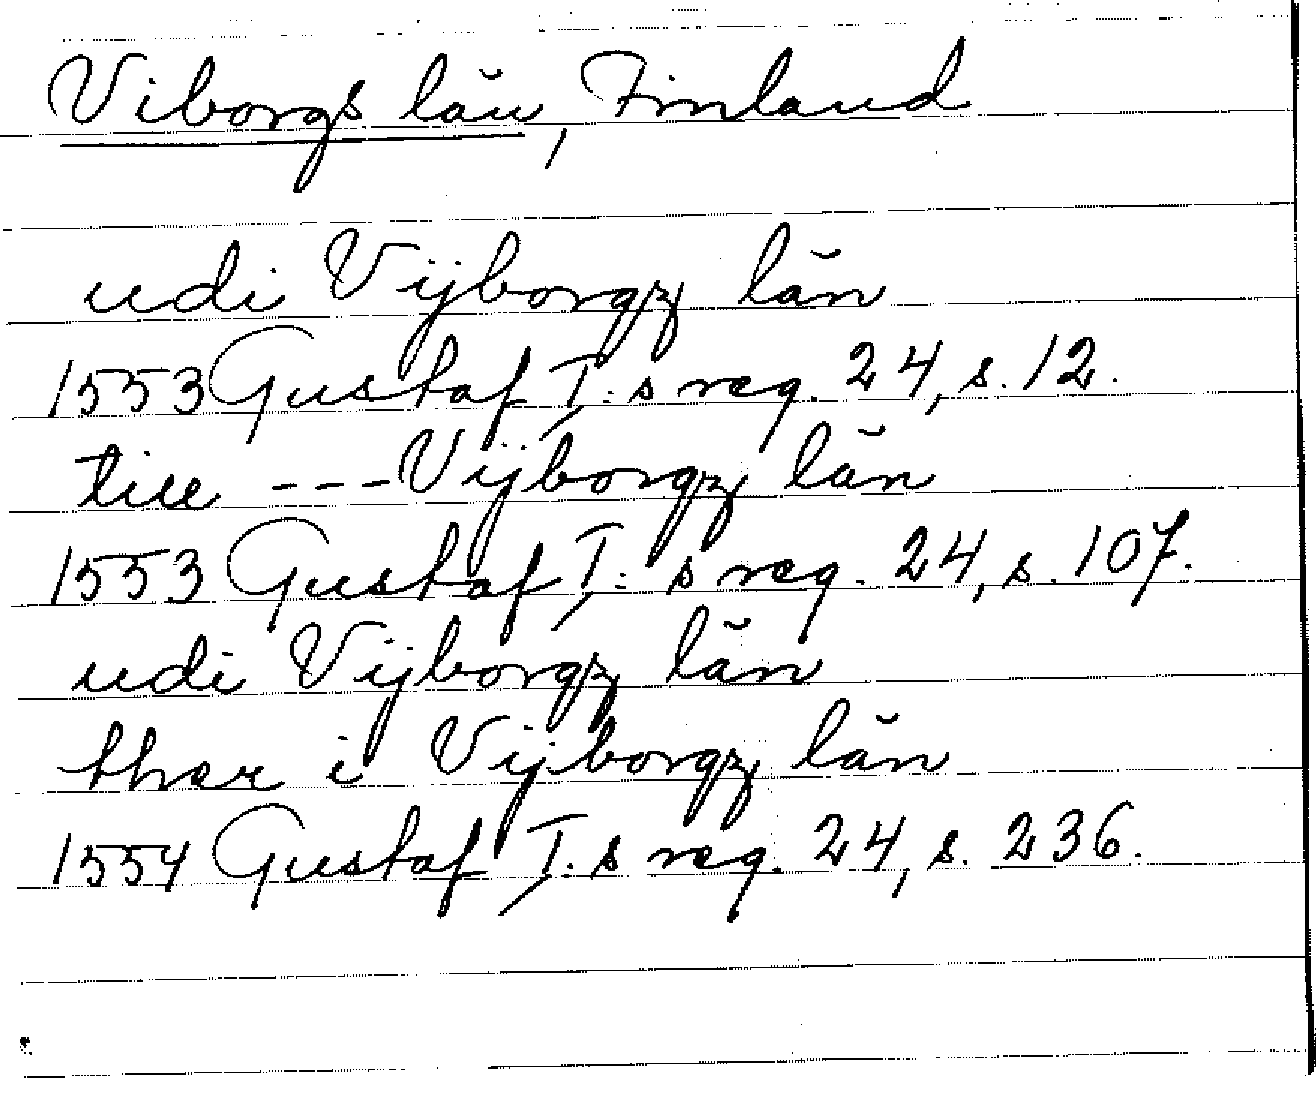 Viborgs län, Finland
udi Vijborgz län
1553 Gustaf I:s reg. 24, s. 12.
till --- Vijborgz län
1553 Gustaf I:s reg. 24, s. 107.
udi Vijborgz län
ther i Vijborgz län
1554 Gustaf I:s reg. 24, s. 236.